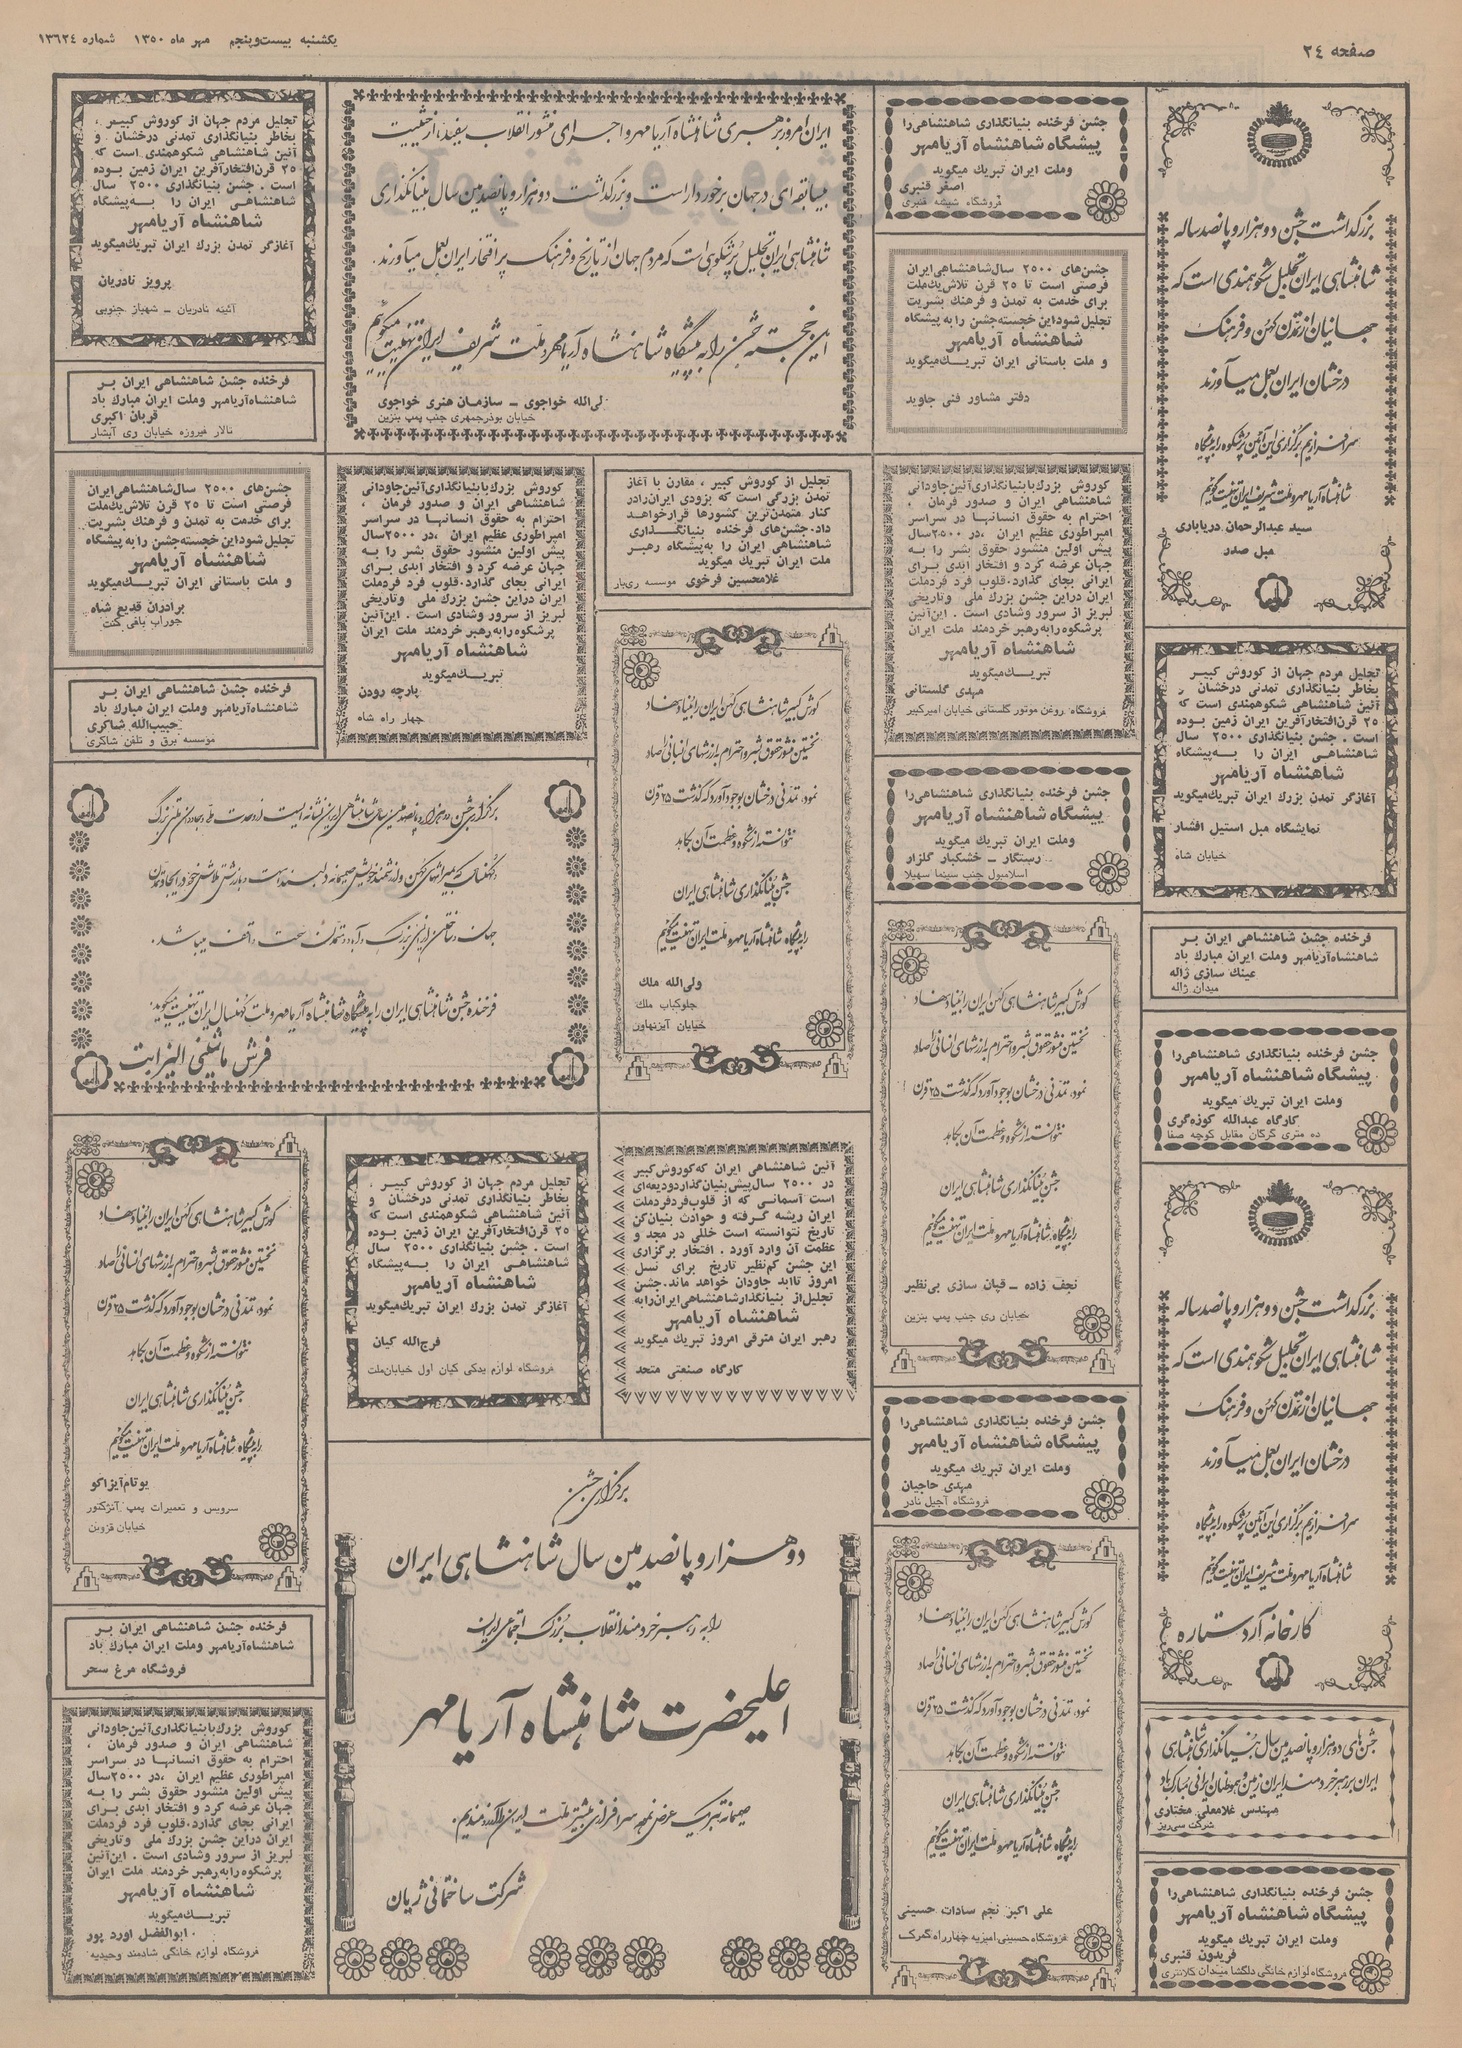 صفحه ۲۴
یکشنبه بیست‌وپنجم مهر ماه ۱۳۵۰ شماره ۱۳۶۲۴
بزرگداشت جشن دو هزار و پانصد ساله
شاهنشاهی ایران تجلیل شکوهمندی است که
جهانیان از تمدن کهن و فرهنگ
درخشان ایران بعمل میآورند
سرافرازیم برگزاری این آئین پرشکوه را به پیشگاه
شاهنشاه آریامهر و ملت شریف ایران تهنیت گوئیم
سید عبدالرحمان دریاباری
مبل صدر
تجلیل مردم جهان از کوروش کبیر
بخاطر بنیانگذاری تمدنی درخشان و
آئین شاهنشاهی شکوهمندی است که
۲۵ قرن‌افتخارآفرین ایران زمین بوده
است . جشن بنیانگذاری ۲۵۰۰ سال
شاهنشاهی ایران را به‌پیشگاه
شاهنشاه آریامهر
آغازگر تمدن بزرك ایران تبریك‌میگوید
نمایشگاه مبل استیل افشار
خیابان شاه
فرخنده جشن شاهنشاهی ایران بر
شاهنشاه‌آریامهر وملت ایران مبارك باد
عینك سازی ژاله
میدان ژاله
جشن فرخنده بنیانگذاری شاهنشاهی‌را
پیشگاه شاهنشاه آریامهر
وملت ایران تبریك میگوید
کارگاه عبدالله کوزه‌گری
ده متری گرگان مقابل کوچه صفا
بزرگداشت جشن دو هزار و پانصد ساله
شاهنشاهی ایران تجلیل شکوهمندی است که
جهانیان از تمدن کهن و فرهنگ
درخشان ایران بعمل میآورند
سرافرازیم برگزاری این آئین پرشکوه را به پیشگاه
شاهنشاه آریامهر و ملت شریف ایران تهنیت گوئیم
کارخانه آرد ستاره
جشن‌های دو هزار و پانصدمین سال بنیانگذاری شاهنشاهی
ایران بر رهبر خردمند ایران زمین و هموطنان ایرانی مبارک باد
مهندس غلامعلی مختاری
شرکت سی‌ریز
جشن فرخنده بنیانگذاری شاهنشاهی‌را
پیشگاه شاهنشاه آریامهر
وملت ایران تبریك میگوید
فریدون قنبری
فروشگاه لوازم خانگی دلگشا میدان کلانتری
جشن فرخنده بنیانگذاری شاهنشاهی‌را
پیشگاه شاهنشاه آریامهر
وملت ایران تبریك میگوید
اصغر قنبری
فروشگاه شیشه قنبری
جشن‌های ۲۵۰۰ سال‌شاهنشاهی‌ایران
فرصتی است تا ۲۵ قرن تلاش‌یك‌ملت
برای خدمت به تمدن و فرهنك بشریت
تجلیل شود‌این خجسته‌جشن را به پیشگاه
شاهنشاه آریامهر
و ملت باستانی ایران تبریك‌میگوید
دفتر مشاور فنی جاوید
کوروش بزرك‌با‌بنیانگذاری‌آئین‌جاودانی
شاهنشاهی ایران و صدور فرمان ،
احترام به حقوق انسانها در سراسر
امپراطوری عظیم ایران ،در ۲۵۰۰سال
پیش اولین منشور حقوق بشر را به
جهان عرضه کرد و افتخار ابدی برای
ایرانی بجای گذارد.قلوب فرد فردملت
ایران دراین جشن بزرك ملی وتاریخی
لبریز از سرور وشادی است . این‌آئین
پرشکوه رابه رهبر خردمند ملت ایران
شاهنشاه آریامهر
تبریك‌میگوید
مهدی گلستانی
فروشگاه روغن موتور گلستانی خیابان امیرکبیر
جشن فرخنده بنیانگذاری شاهنشاهی‌را
پیشگاه شاهنشاه آریامهر
وملت ایران تبریك میگوید
رستگار – خشکبار گلزار
اسلامبول جنب سینما سهیلا
کورش کبیر شاهنشاهی کهن ایران را بنیاد نهاد
نخستین منشور حقوق بشر و احترام به ارزشهای انسانی را صادر
نمود، تمدنی درخشان بوجود آورد که گذشت ۲۵ قرن
نتوانسته از شکوه و عظمت آن بکاهد
جشن بنیانگذاری شاهنشاهی ایران
را به پیشگاه شاهنشاه آریامهر و ملت ایران تهنیت میگوئیم
نجف زاده – قپان سازی بی‌نظیر
خیابان ری جنب پمپ بنزین
جشن فرخنده بنیانگذاری شاهنشاهی‌را
پیشگاه شاهنشاه آریامهر
وملت ایران تبریك میگوید
مهدی حاجیان
فروشگاه آجیل نادر
کورش کبیر شاهنشاهی کهن ایران را بنیاد نهاد
نخستین منشور حقوق بشر و احترام به ارزشهای انسانی را صادر
نمود، تمدنی درخشان بوجود آورد که گذشت ۲۵ قرن
نتوانسته از شکوه و عظمت آن بکاهد
جشن بنیانگذاری شاهنشاهی ایران
را به پیشگاه شاهنشاه آریامهر و ملت ایران تهنیت میگوئیم
علی اکبر نجم سادات حسینی
فروشگاه حسینی‌امیریه چهارراه گمرك
ایران امروز به رهبری شاهنشاه آریامهر و اجرای منشور انقلاب سفید، از حیثیت
بیسابقه‌ای در جهان برخوردار است و بزرگداشت دو هزار و پانصدمین سال بنیانگذاری
شاهنشاهی ایران تجلیل پرشکوهی است که مردم جهان از تاریخ و فرهنگ پر افتخار ایران بعمل میآورند.
این خجسته جشن را به پیشگاه شاهنشاه آریامهر و ملت شریف ایران تهنیت میگوئیم
لی‌الله خواجوی – سازمان هنری خواجوی
خیابان بوذرجمهری جنب پمپ بنزین
تجلیل از کوروش کبیر ، مقارن با آغاز
تمدن بزرگی است که بزودی ایران‌رادر
کنار متمدن‌ترین کشورها قرارخواهد
داد.جشن‌های فرخنده بنیانگذاری
شاهنشاهی ایران را به‌پیشگاه رهبر
ملت ایران تبریك میگوید
غلامحسین فرخوی موسسه ری‌بار
کوروش بزرك‌با‌بنیانگذاری‌آئین‌جاودانی
شاهنشاهی ایران و صدور فرمان ،
احترام به حقوق انسانها در سراسر
امپراطوری عظیم ایران ،در ۲۵۰۰سال
پیش اولین منشور حقوق بشر را به
جهان عرضه کرد و افتخار ابدی برای
ایرانی بجای گذارد.قلوب فرد فردملت
ایران دراین جشن بزرك ملی وتاریخی
لبریز از سرور وشادی است . این‌آئین
پرشکوه رابه رهبر خردمند ملت ایران
شاهنشاه آریامهر
تبریك‌میگوید
پارچه رودن
چهار راه شاه
کورش کبیر شاهنشاهی کهن ایران را بنیاد نهاد
نخستین منشور حقوق بشر و احترام به ارزشهای انسانی را صادر
نمود، تمدنی درخشان بوجود آورد که گذشت ۲۵ قرن
نتوانسته از شکوه و عظمت آن بکاهد
جشن بنیانگذاری شاهنشاهی ایران
را به پیشگاه شاهنشاه آریامهر و ملت ایران تهنیت میگوئیم
ولی‌الله ملك
چلوکباب ملك
خیابان آیزنهاور
آئین شاهنشاهی ایران که‌کوروش‌کبیر
در ۲۵۰۰ سال‌پیش‌بنیان‌گذارد‌ودیعه‌ای
است آسمانی که از قلوب‌فردفردملت
ایران ریشه گرفته و حوادث بنیان‌کن
تاریخ نتوانسته است خللی در مجد و
عظمت آن وارد آورد . افتخار برگزاری
این جشن کم‌نظیر تاریخ برای نسل
امروز تاابد جاودان خواهد ماند.جشن
تجلیل‌از بنیانگذار‌شاهنشاهی‌ایران‌رابه
شاهنشاه آریامهر
رهبر ایران مترقی امروز تبریك میگوید
کارگاه صنعتی متحد
تجلیل مردم جهان از کوروش کبیر ،
بخاطر بنیانگذاری تمدنی درخشان و
آئین شاهنشاهی شکوهمندی است که
۲۵ قرن‌افتخارآفرین ایران زمین بوده
است . جشن بنیانگذاری ۲۵۰۰ سال
شاهنشاهی ایران را به‌پیشگاه
شاهنشاه آریامهر
آغازگر تمدن بزرك ایران تبریك‌میگوید
فرج‌الله کیان
فروشگاه لوازم یدکی کیان اول خیابان‌ملت
برگزاری جشن
دو هزار و پانصدمین سال شاهنشاهی ایران
را به رهبر خردمند انقلاب بزرگ اجتماعی ایران
اعلیحضرت شاهنشاه آریامهر
صمیمانه تبریک عرض نموده سرافرازی بیشتر ملت ایران را آرزومندیم.
شرکت ساختمانی ژیان
تجلیل مردم جهان از کوروش کبیر ،
بخاطر بنیانگذاری تمدنی درخشان و
آئین شاهنشاهی شکوهمندی است که
۲۵ قرن‌افتخارآفرین ایران زمین بوده
است . جشن بنیانگذاری ۲۵۰۰ سال
شاهنشاهی ایران را به‌پیشگاه
شاهنشاه آریامهر
آغازگر تمدن بزرك ایران تبریك‌میگوید
پرویز نادریان
آئینه نادریان – شهباز جنوبی
فرخنده جشن شاهنشاهی ایران بر
شاهنشاه‌آریامهر وملت ایران مبارك باد
قربان اکبری
تالار فیروزه خیابان ری آبشار
جشن‌های ۲۵۰۰ سال‌شاهنشاهی‌ایران
فرصتی است تا ۲۵ قرن تلاش‌یك‌ملت
برای خدمت به تمدن و فرهنك بشریت
تجلیل شود‌این خجسته‌جشن را به پیشگاه
شاهنشاه آریامهر
و ملت باستانی ایران تبریك‌میگوید
برادران قدیع شاه
جوراب بافی کنت
فرخنده جشن شاهنشاهی ایران بر
شاهنشاه‌آریامهر وملت ایران مبارك باد
حبیب‌الله شاکری
موسسه برق و تلفن شاکری
برگزاری جشن دو هزار و پانصدمین سال شاهنشاهی ایران نشانه ایست از وحدت ملی
جهان
فرخنده جشن شاهنشاهی ایران را به پیشگاه شاهنشاه آریامهر و ملت کهنسال ایران تهنیت میگوید.
فرش ماشینی الیزابت
کورش کبیر شاهنشاهی کهن ایران را بنیاد نهاد
نخستین منشور حقوق بشر و احترام به ارزشهای انسانی را صادر
نمود، تمدنی درخشان بوجود آورد که گذشت ۲۵ قرن
نتوانسته از شکوه و عظمت آن بکاهد
جشن بنیانگذاری شاهنشاهی ایران
را به پیشگاه شاهنشاه آریامهر و ملت ایران تهنیت میگوئیم
یوتام‌آیزاکو
سرویس و تعمیرات پمپ آنژکتور
خیابان قزوین
فرخنده جشن شاهنشاهی ایران بر
شاهنشاه‌آریامهر وملت ایران مبارك باد
فروشگاه مرغ سحر
کوروش بزرك‌با‌بنیانگذاری‌آئین‌جاودانی
شاهنشاهی ایران و صدور فرمان ،
احترام به حقوق انسانها در سراسر
امپراطوری عظیم ایران ،در ۲۵۰۰سال
پیش اولین منشور حقوق بشر را به
جهان عرضه کرد و افتخار ابدی برای
ایرانی بجای گذارد.قلوب فرد فردملت
ایران دراین جشن بزرك ملی وتاریخی
لبریز از سرور وشادی است . این‌آئین
پرشکوه رابه رهبر خردمند ملت ایران
شاهنشاه آریامهر
تبریك‌میگوید
ابوالفضل آورد پور
فروشگاه لوازم خانگی شادمند وحیدیه